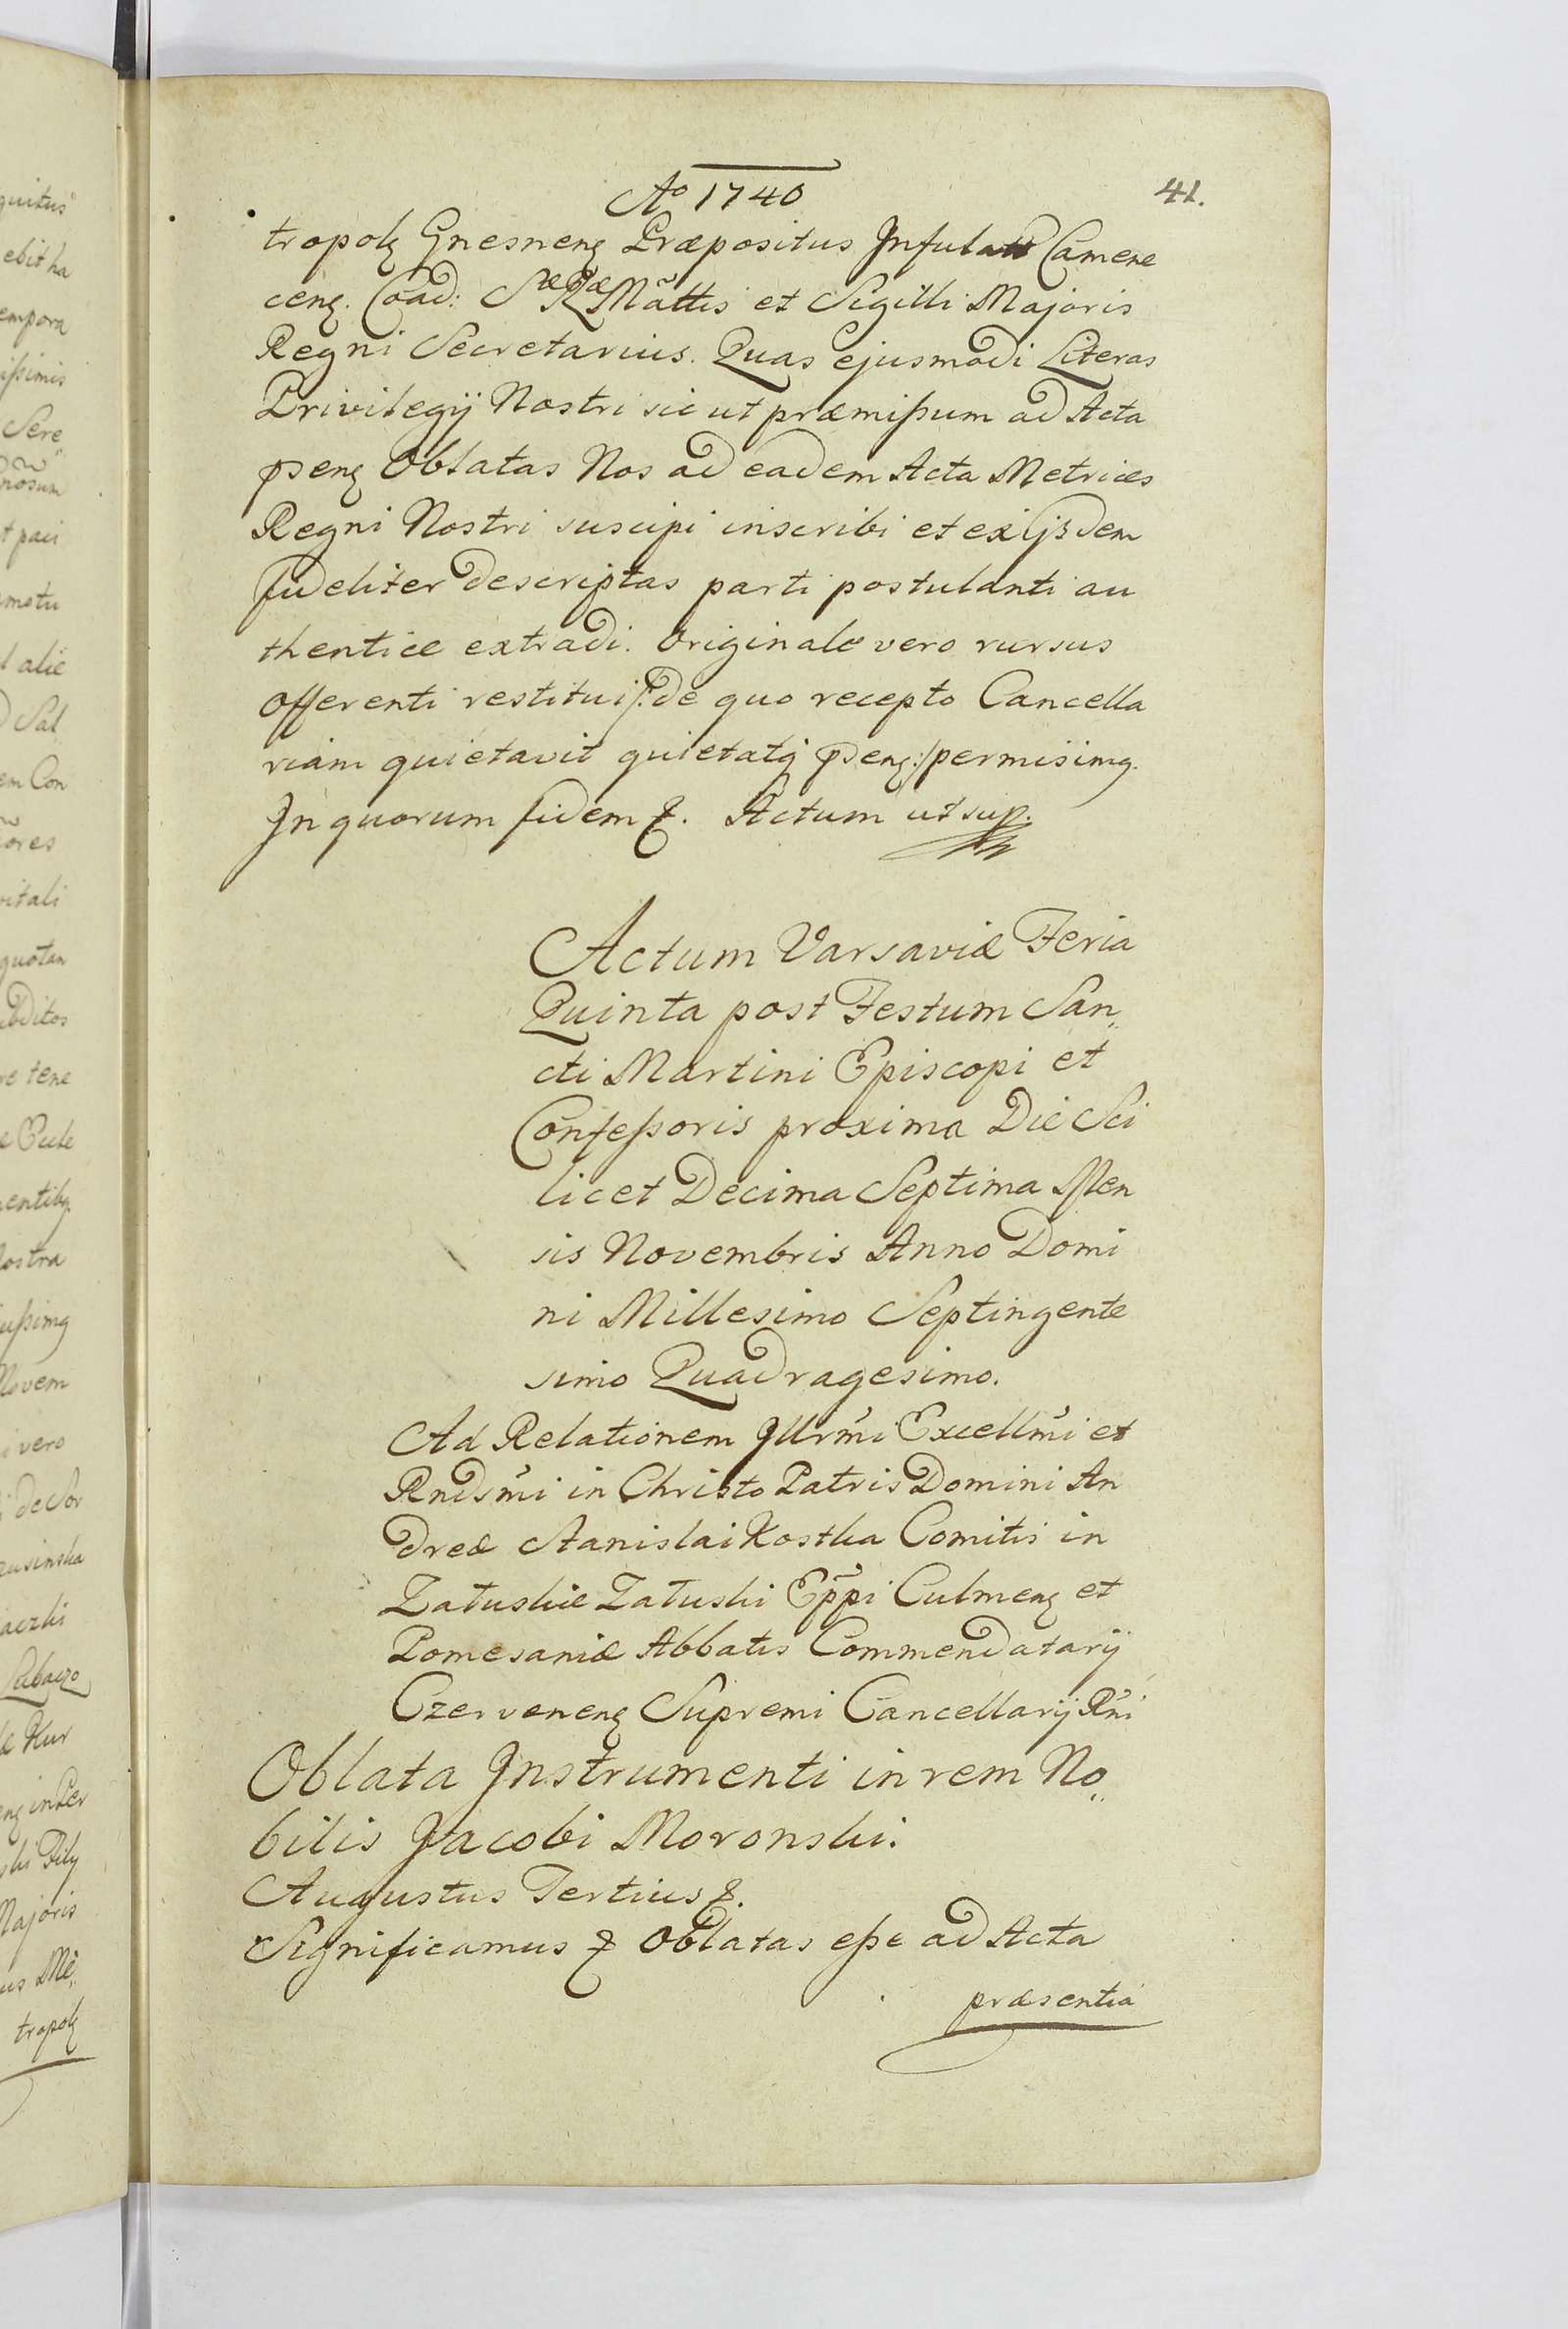 Aº 1740
41.
tropolę Gnesnenę Præpositus Infulatt Camene
cenę. Coad: Sæ Ræ Mãttis et Sigilli Majoris
Regni Secretarius. Quas ejusmodi Literas
Privilegij Nostri sic ut præmißum ad Acta
psenę Oblatas Nos ad eadem Acta Metrices
Regni Nostri suscipi inscribi et ex ijsdem
fideliter descriptas parti postulanti au
thentice extradi. Originale vero rursus
offerenti restitui /:de quo recepto Cancella
riam quietavit quietatq psenę:/ permisimq.
In quorum fidem &. Actum ut sup.
Actum Varsaviæ Feria
Quinta post Festum San„
cti Martini Episcopi et
Confeßoris proxima Die Sci
licet Decima Septima Men
sis Novembris Anno Domi
ni Millesimo Septingente
simo Quadragesimo.
Ad Relationem Illrmi Excellmi et
Rndsmi in Christo Patris Domini An
dreæ Stanislai Kostka Comitis in
Załuskie Załuski Eppi Culmenę et
Pomesaniæ Abbatis Commendatarij
Czervenenę Supremi Cancellarij Rni
Oblata Instrumenti in rem No„
bilis Jacobi Moronski.
Augustus Tertius &.
Significamus & Oblatas eße ad Acta
præsentia